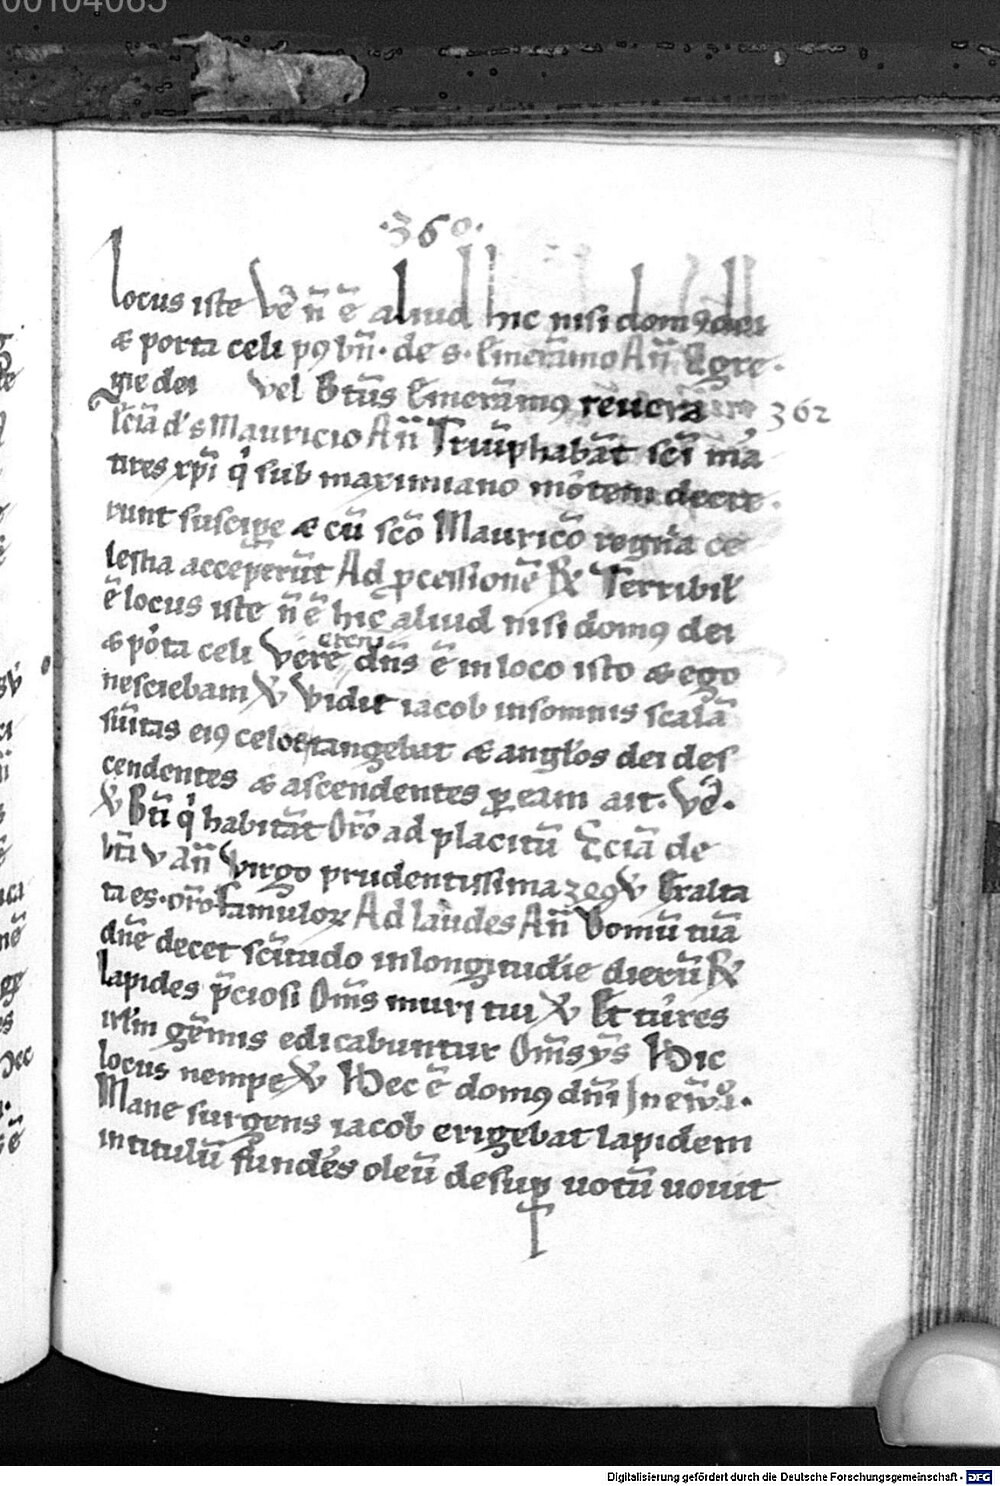 00104065
·360·
locus iste Vē n̄ ē aliud hic nisi dom9 dei
& porta celi p9 bn̄· de s· Emeram̄o An̄ Egre-
gie dei vel Btūs Emeram̄9 reuera 362
sciā d's Mauricio An̄ Triūphabāt scī mā
tires xp̄i q̇ sub maximiano mortem decre-
runt suscipe & cū scō Mauricō regna ce
lestia acceperūt Ad ꝓcessionē ℟ Terribil'
ē locus iste n̄ ē hic aliud nisi dom9 dei
& porta celi Vere etem̄ dn̄s ē in loco isto & ego
nesciebam ℣ Vidit iacob in somnis scalā
sum̄itas ei9 celos tangebat & angl'os dei des
cendentes & ascendentes ꝑ eam ait· Vē·
℣ Bti q̇ habitāt Orō ad placitū Sciā de
bt̄i v an̄ Virgo prudentissima 309 ℣ Exalta
ta es· orō famuloꝝ Ad laudes An̄ Domū tuā
dn̄e decet scītudo in longitudīe dierū ℟
Lapides p̄ciosi Om̄s muri tui ℣ Et turres
irl'm gem̄is edicabuntur Om̄s ys Hic
locus nempe ℣ Hec ē domus dn̄i In ew̄·i·
Mane surgens iacob erigebat lapidem
in titulū fundēs oleū desuꝑ uotū uouit
Digitalisierung gefördert durch die Deutsche Forschungsgemeinschaft - DFG